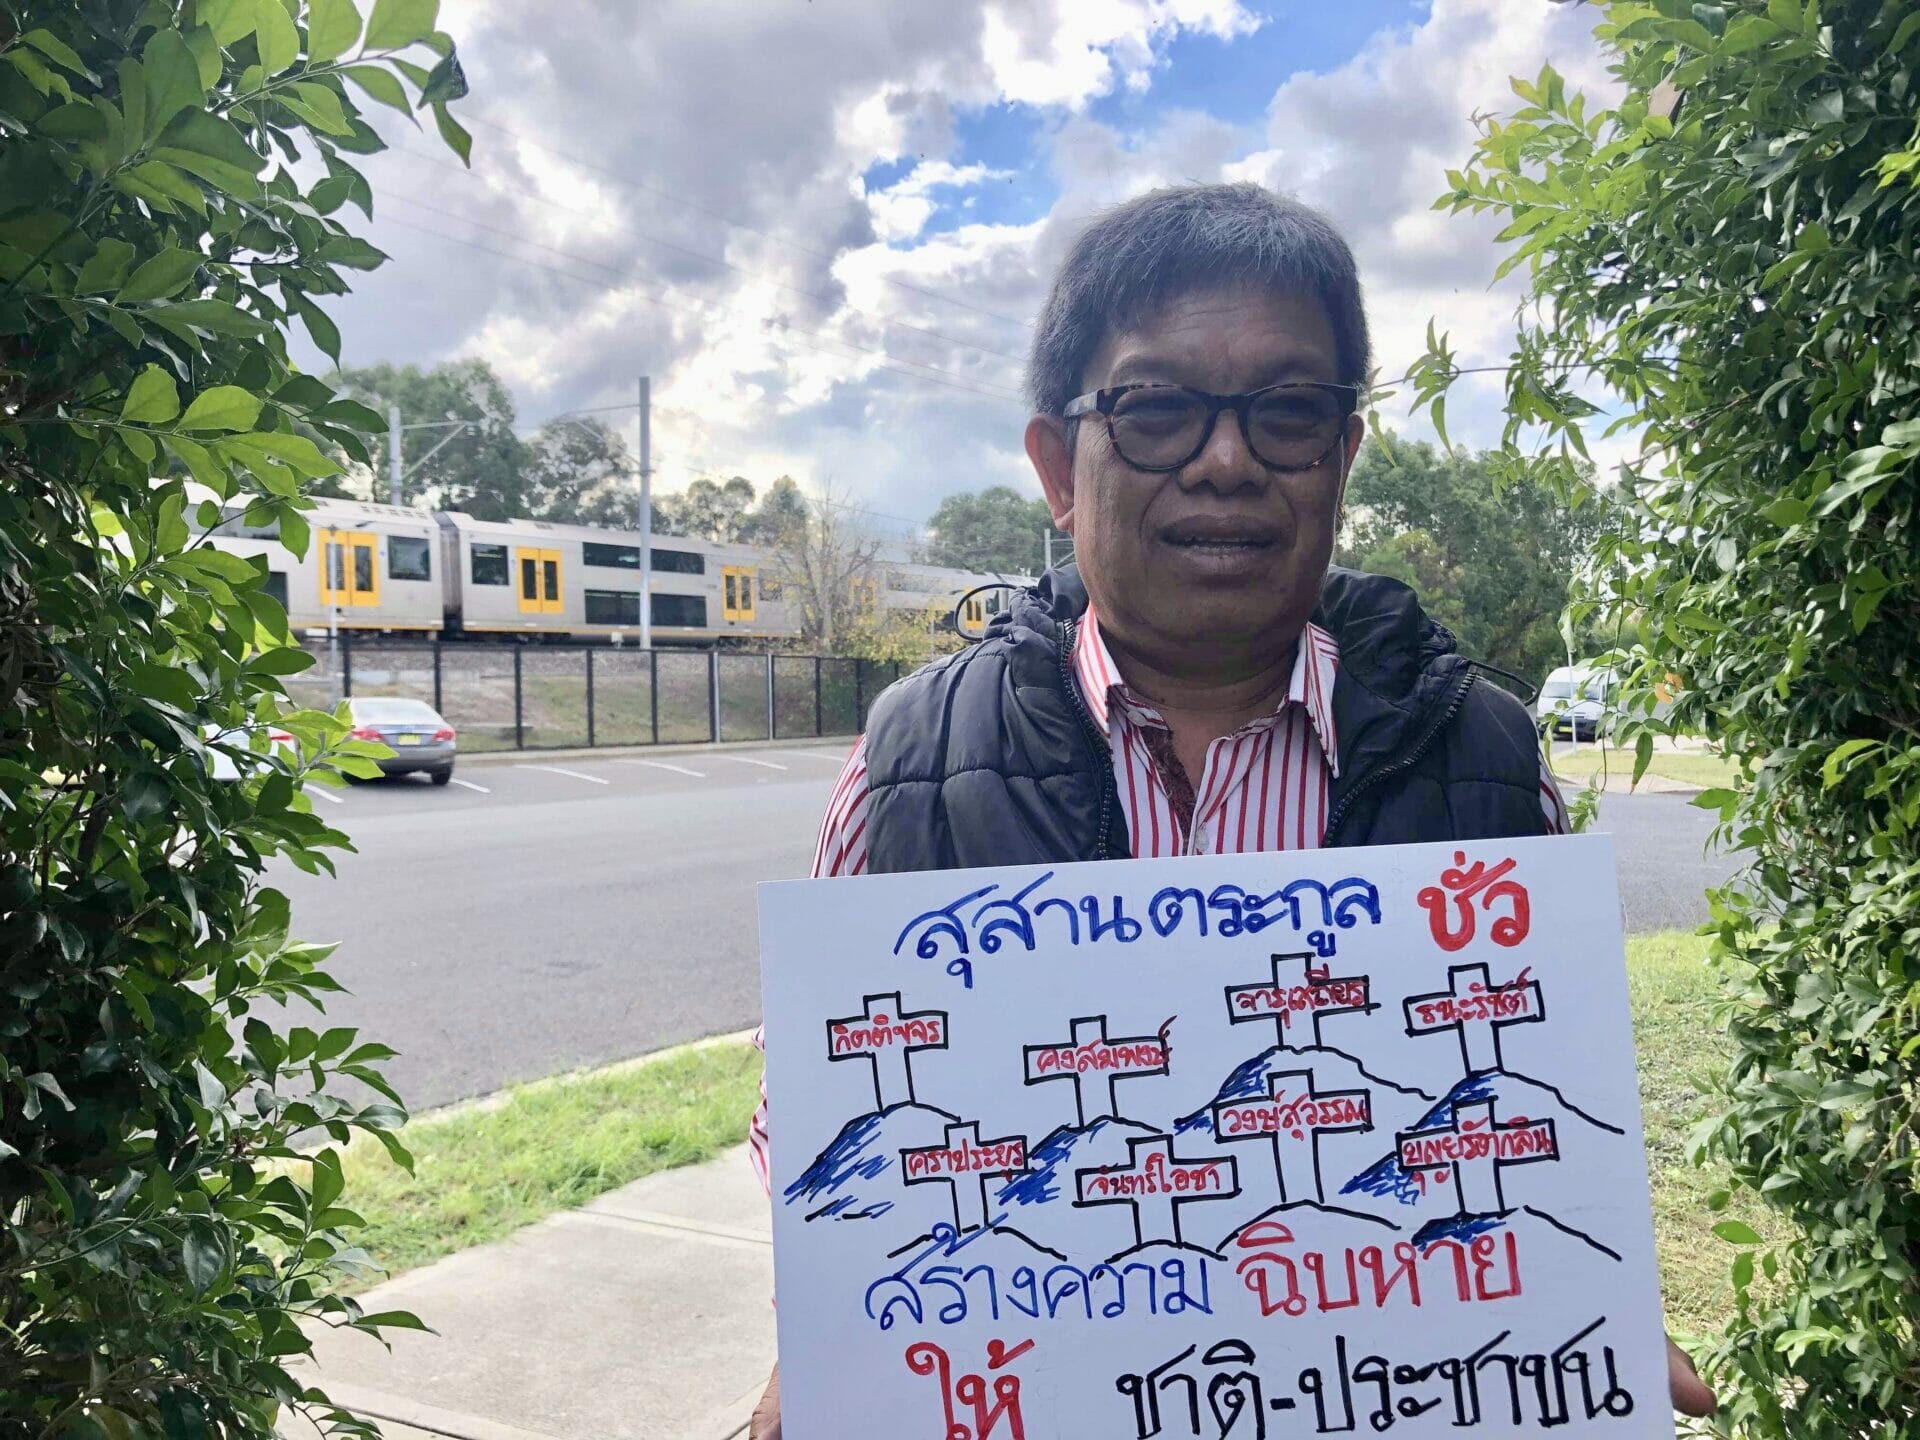 สุสานตระกูล ชั่ว
กิตติขจร
คงสมพงษ์
จารุเสถียร
ธนะรัชต์
คราประยูร
จันทร์โอชา
วงษ์สุวรรณ
บุณยรัตกลิน
สร้างความ ฉิบหาย
ให้ ชาติ-ประชาชน